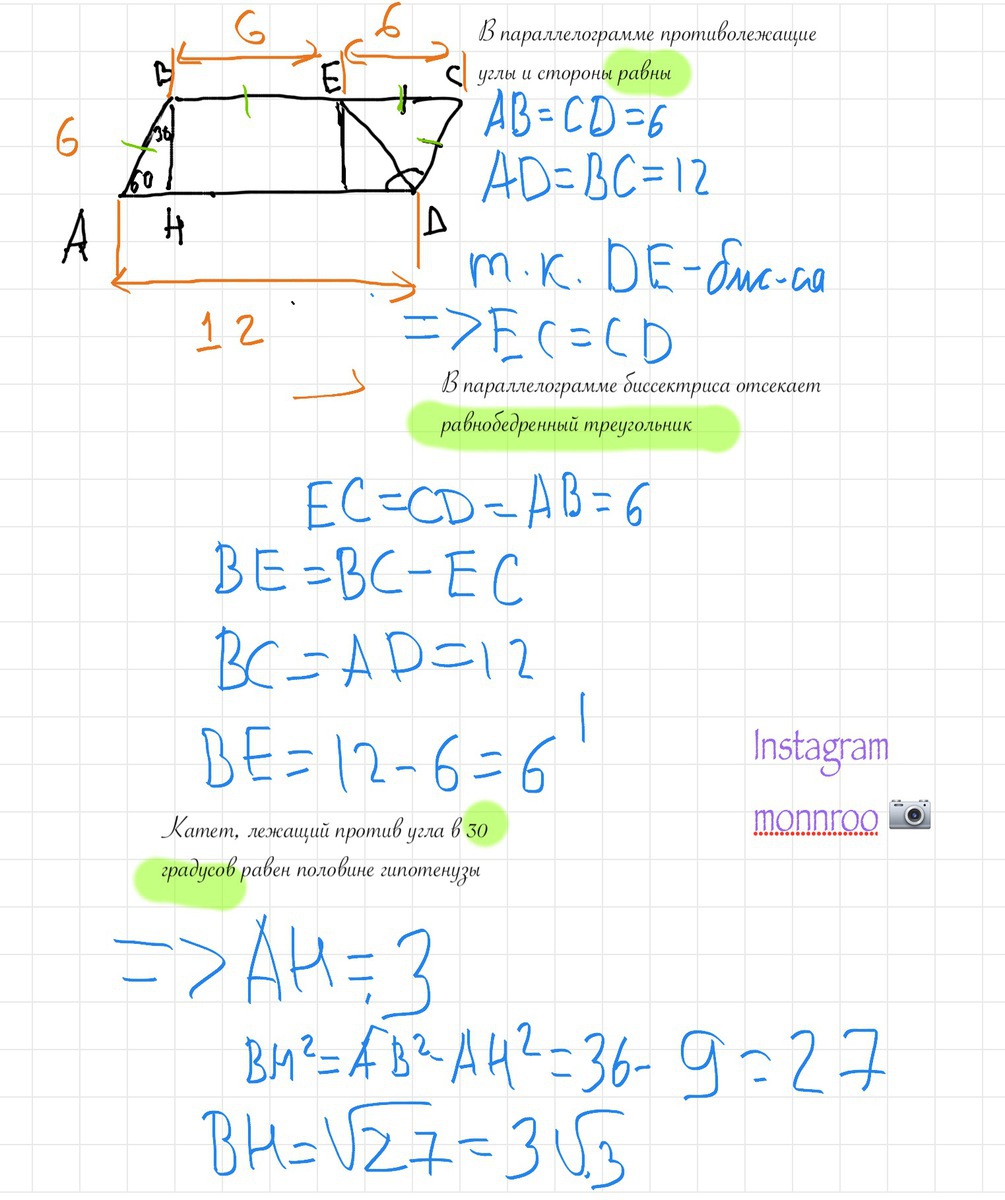 6 6
В параллелограмме противолежащие
углы и стороны равны
B E C
6
30
60
A H D
12
AB=CD=6
AD=BC=12
т.к. DE-бис-са
=>EC=CD
В параллелограмме биссектриса отсекает
равнобедренный треугольник
EC=CD=AB=6
BE=BC-EC
BC=AD=12
BE=12-6=6
Instagram
monnroo
Катет, лежащий против угла в 30
градусов равен половине гипотенузы
=>AH=3
BH²=AB²-AH²=36-9=27
BH=√27=3√3